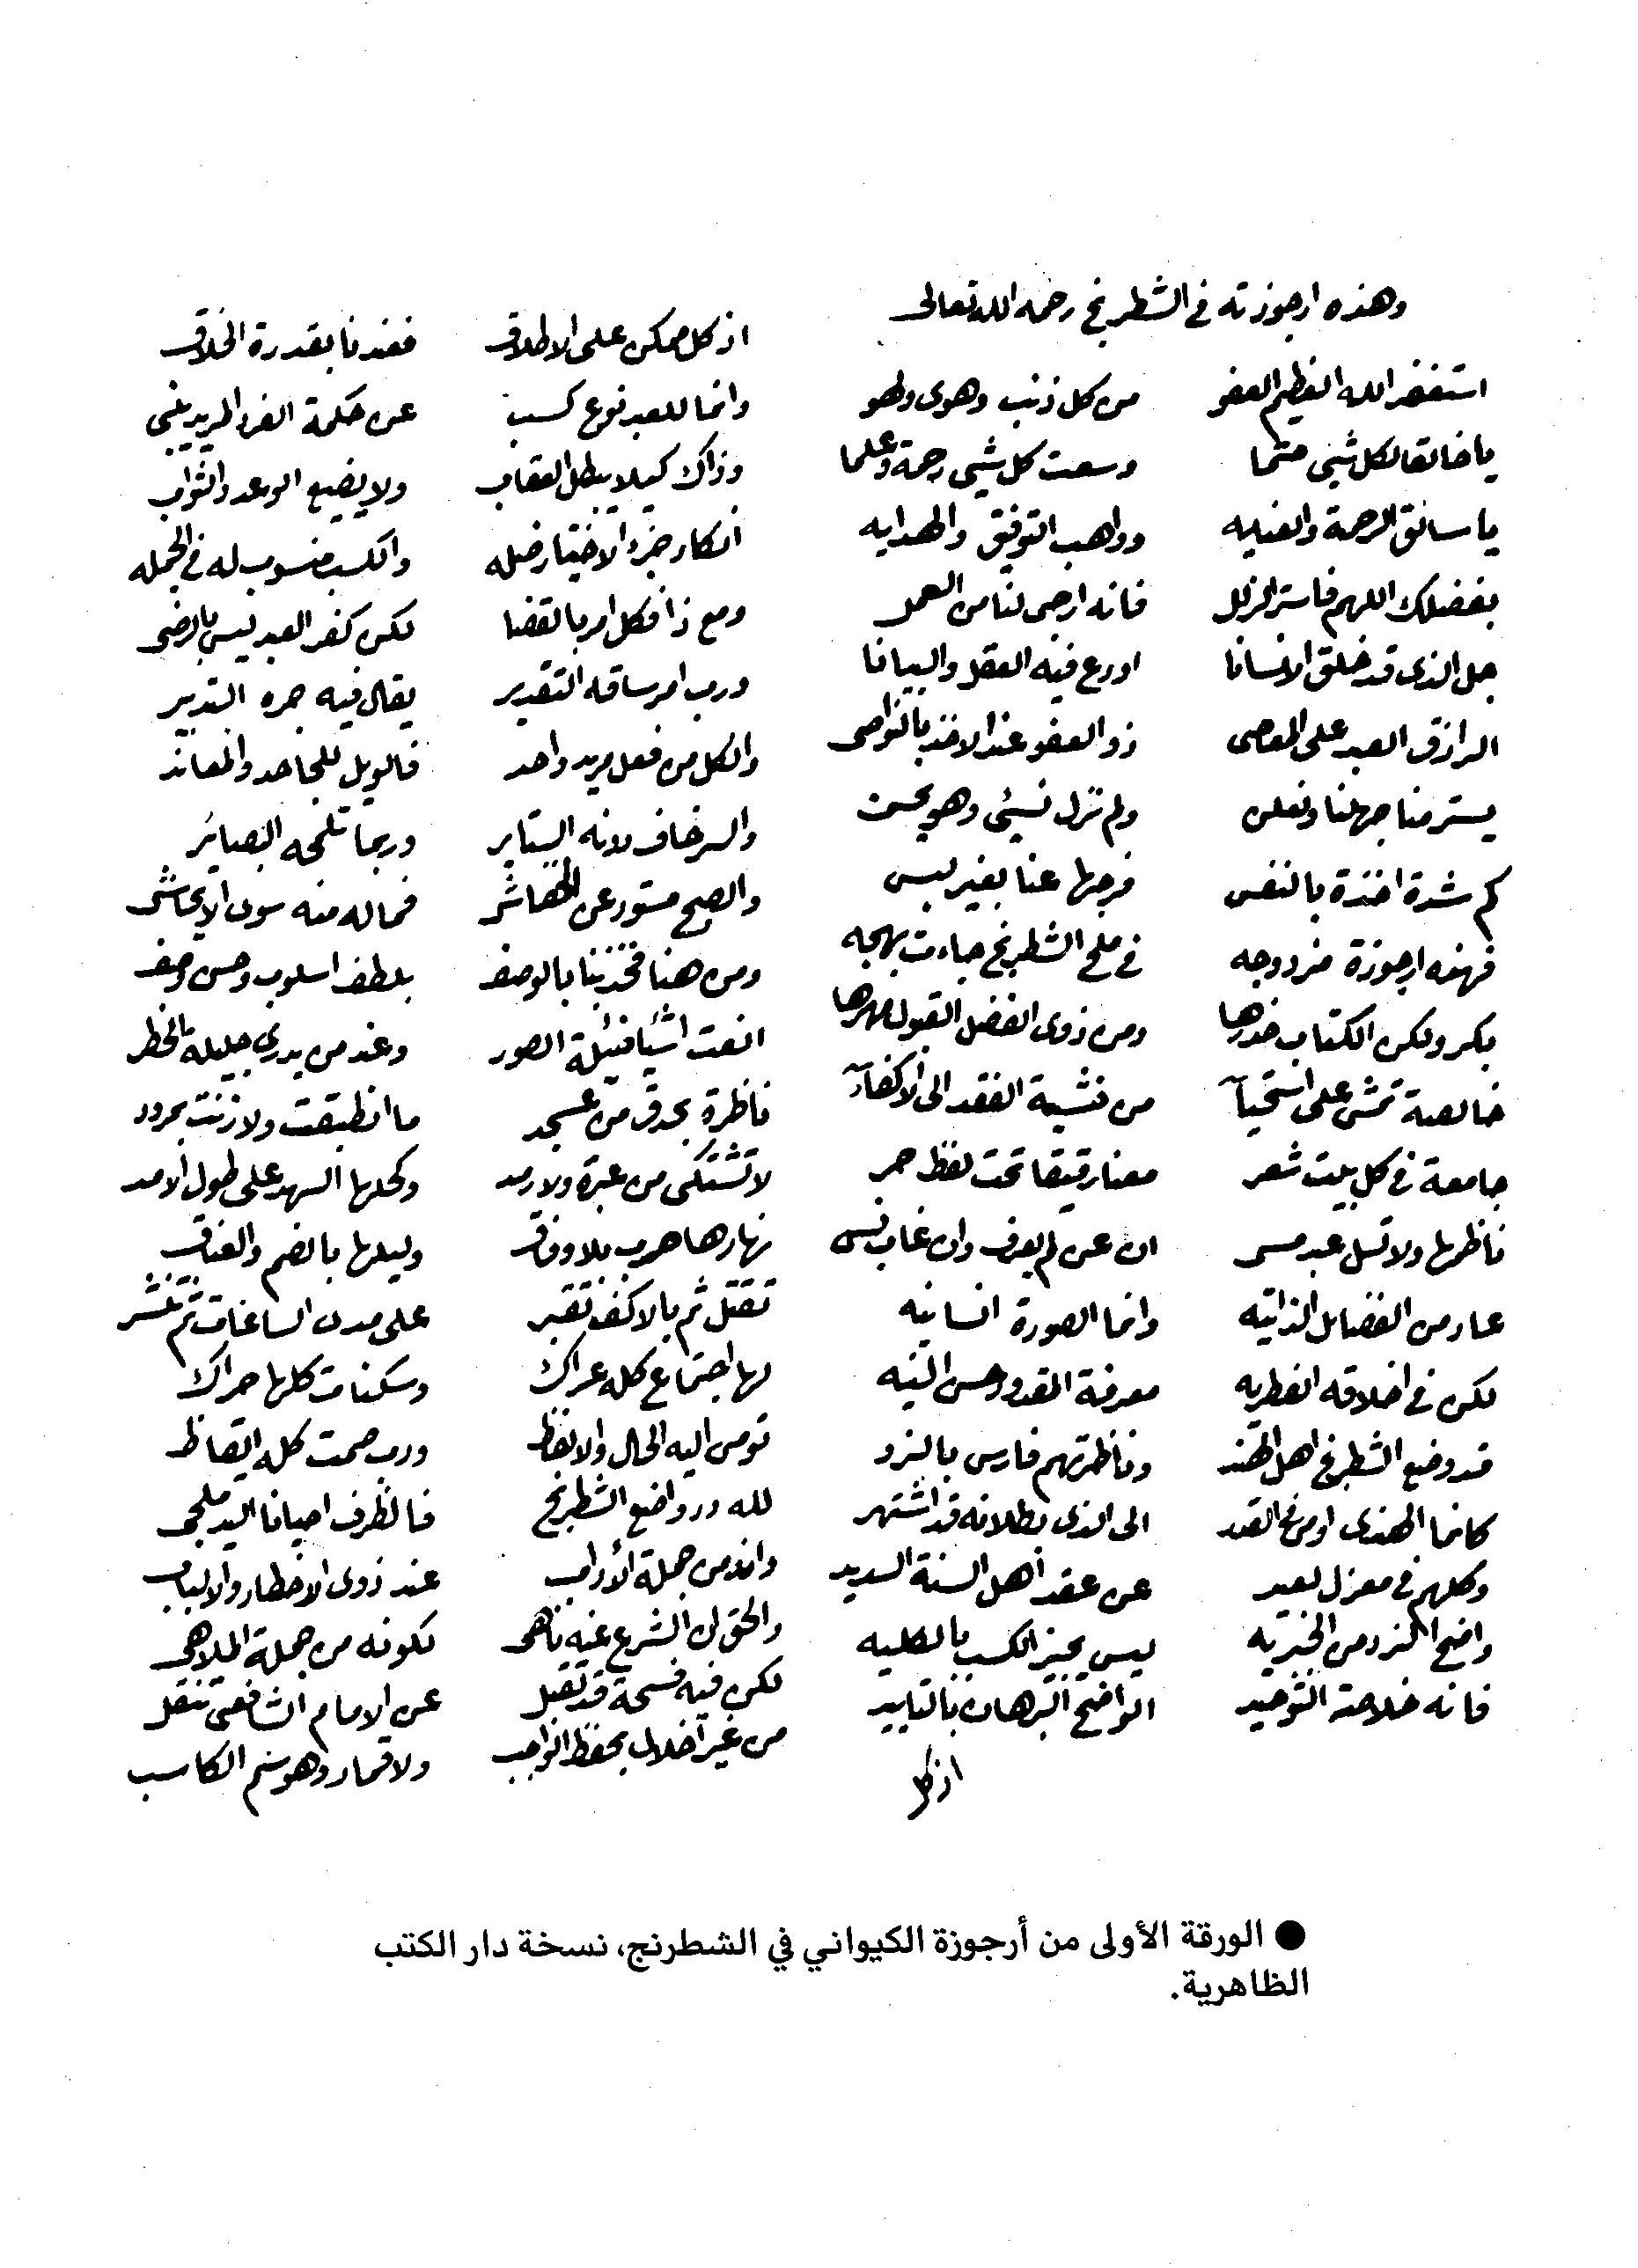 وهذه ارجوزته في الشطرنج رحمه الله تعالى
استغفر الله العظيم العفو من كل ذنب وهوى ولهو
يا خالقا لكل شيء حتما وسعت كل شيء رحمة وعلما
يا سابق الرحمة والعنايه وواهب التوفيق والهدايه
بفضلك اللهم فاستر الزلل فانه ارجى لنا من العمل
جل الذي قد خلق الانسانا اودع فيه العقل والبيانا
الرازق العبد على المعاصي ذو العفو عند الاخذ بالنواصي
يستر منا جهلنا ونعلن ولم نزل نسيئ وهو يحسن
كم شدة اخذة بالنفس فرجها عنا بغير لبس
فهذه ارجوزة مزدوجه في ملح الشطرنج جاءت بهجه
بكر ولكن الكتاب خدرها ومن ذوي الفضل القبول مهرها
خالصة تمشي على استحيآ من الفقد الى الاكفآ
جامعة في كل بيت شعر معنا رقيقا تحت لفظ حر
ناظرها ولا تسل عبد مسي ان عن لم يعرف وان غاب نسي
عار من الفضايل الذاتيه وانما الصورة انسانيه
لكن في اخلاقه الفطريه معرفة القدر وحسن النيه
قد وضع الشطرنج اهل الهند وناظرتهم فارس بالنرد
كانما الهندي الى الذي بطلانه قد اشتهر
وكلهم في معزل بعيد عن عقد اهل السنة السديد
واضع النرد من الجبريه ليس يجيز الكسب بالكليه
فانه خلاصة التوحيد الواضح البرهان بالتاييد
اذ كل
اذ كل ممكن على الاطلاق فعندنا بقدرة الخلاق
وانما للعبد نوع كسب عن حكمة الفرد المريد ينبي
وذاك كيلا يبطل العقاب ولا يضيع الوعد والثواب
انكار جزء الاختيار ضله والكسب منسوب له في الجمله
ومع ذا فكل امر بالقضا لكن كفر العبد ليس بالرضى
ورب امر ساقه التقدير يقال فيه جره التدبير
والكل من فعل مريد واحد فالويل للجاحد والمعاند
والسر خاف دونه الستاير وربما تلمحه البصائر
والصبح مستور عن الخفاش فما له منه سوى الايحاش
ومن هنا فخذ بنا بالوصف بلطف اسلوب وحسن وصف
انعت اشيا ضئيلة الصور وعند من يدري جليلة الخطر
ناظرة بحدق من عسجد ما انطبقت ولا زنت بمرود
لا تشتكي من عبرة ولا رمد وكحلها السهد على طول الامد
نهارها حرب بلا وفاق وليلها بالضم والعناق
تقتل ثم بالاكف تقبر على مدى الساعات ثم تنشر
لها اجتماع كله عراك وسكنات كلها حراك
تومي اليه الحال والالفاظ ورب صمت كله ايقاظ
لله در واضع الشطرنج فالظرف احيانا اليه ملجي
وانه من جملة الآداب عند ذوي الاخطار والالباب
والحق ان الشرع عنه ناهي لكونه من جملة الملاهي
لكن فيه فسحة قد تقبل عن الامام الشافعي تنقل
من غير اخلال بحفظ الواجب ولا قمار وهو شم الكاسب
● الورقة الأولى من أرجوزة الكيواني في الشطرنج، نسخة دار الكتب
الظاهرية.